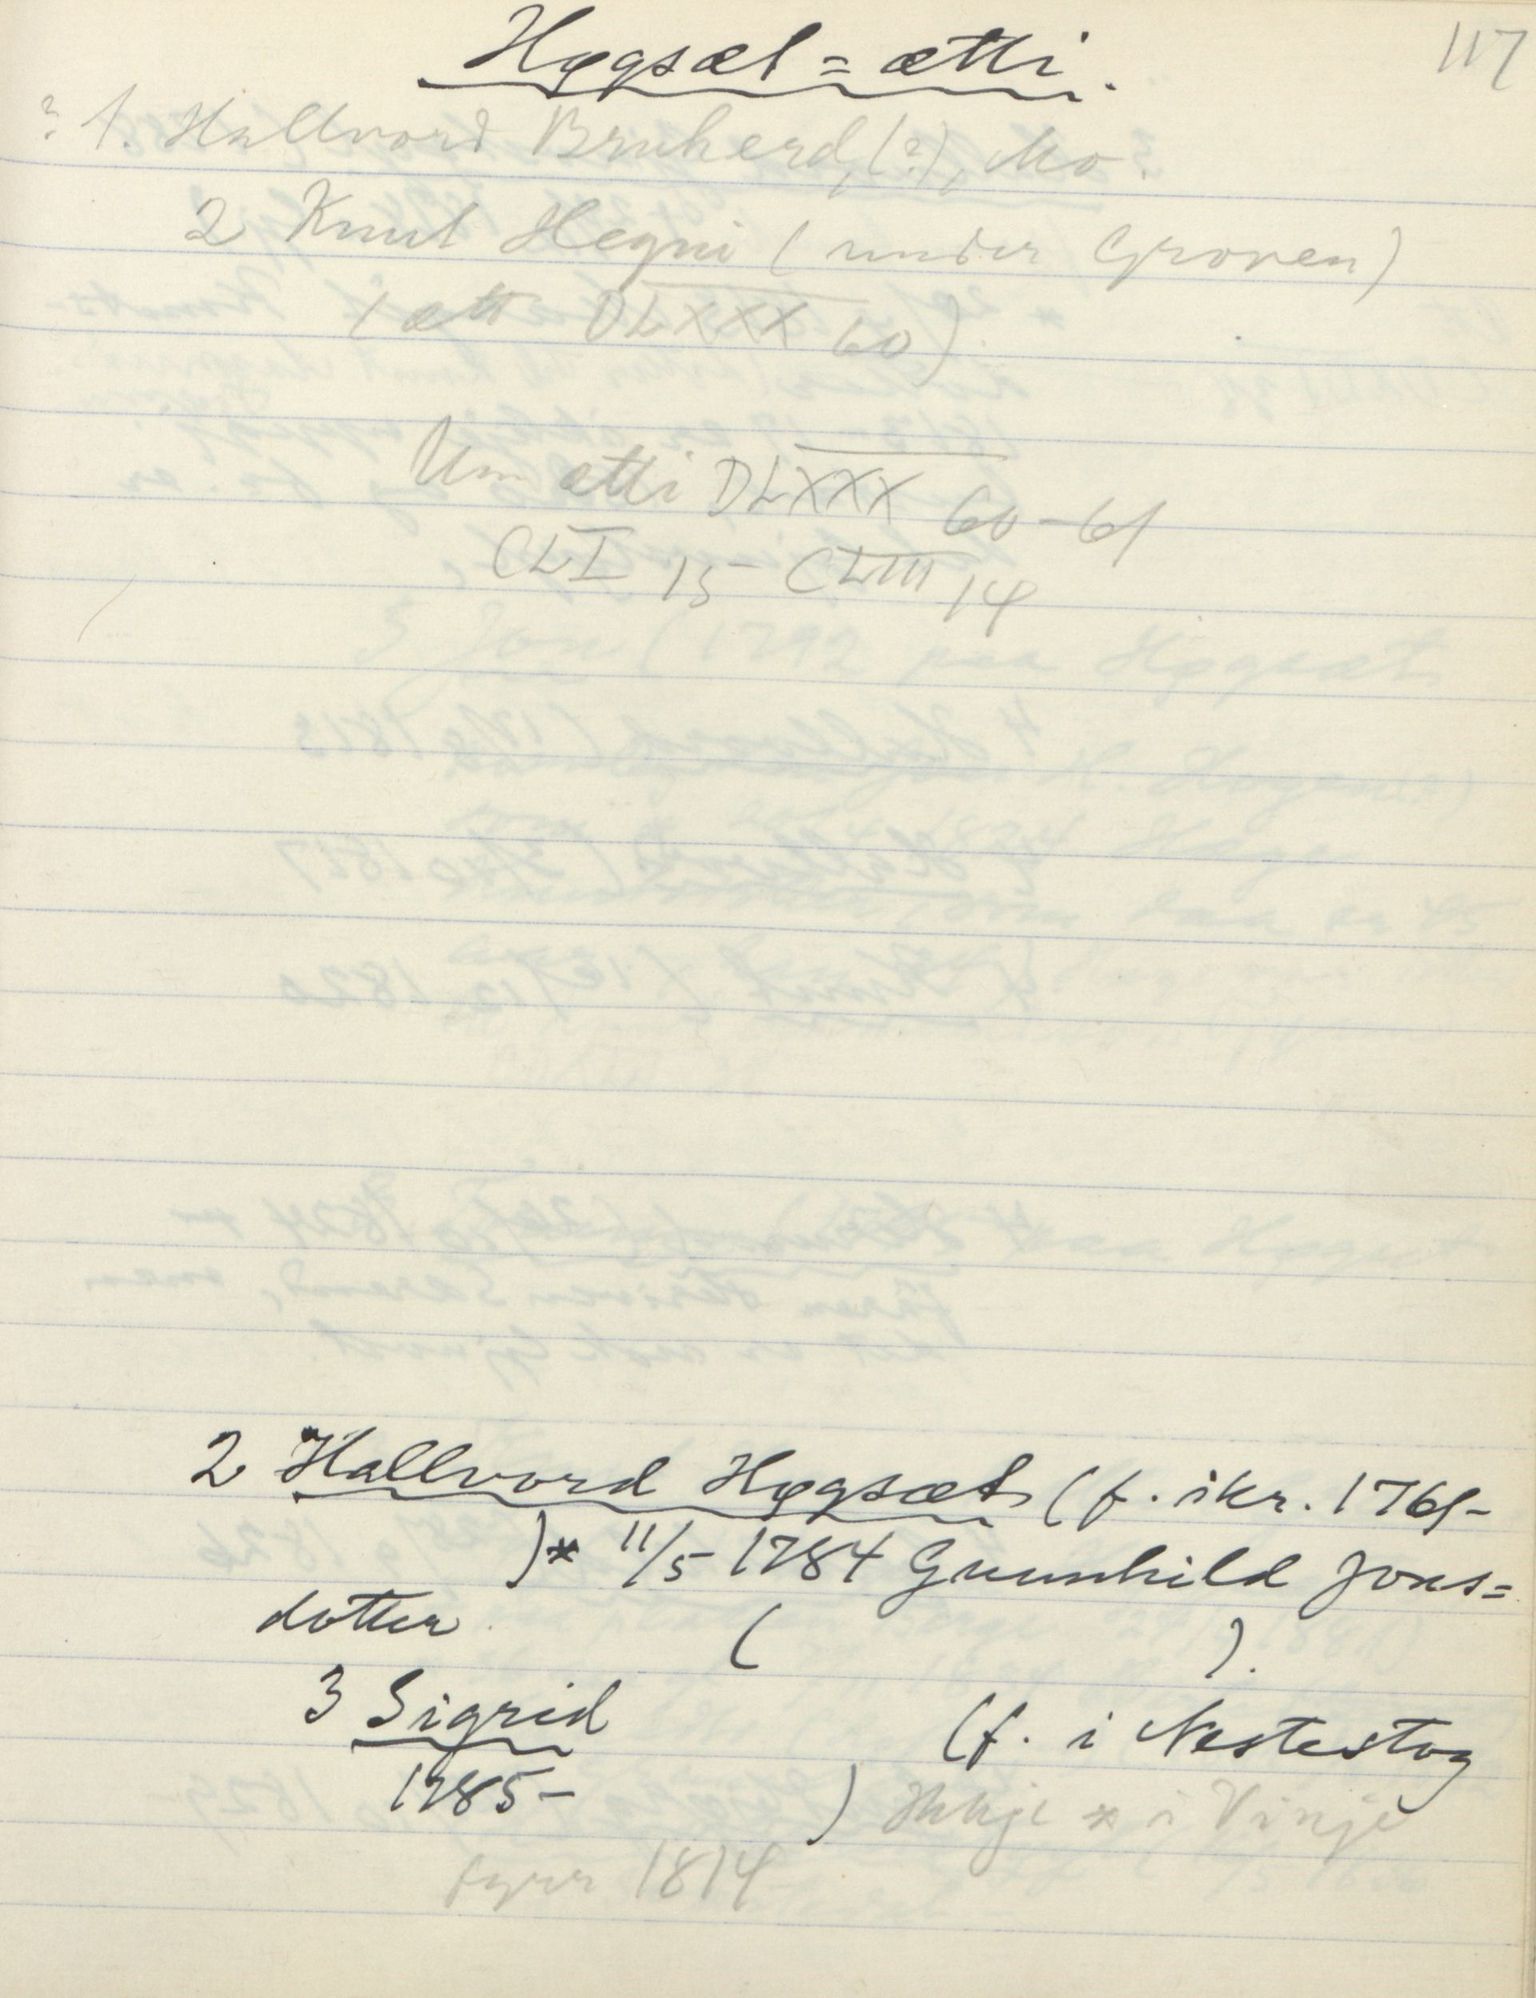 117
Høgsæt=ætti.
? 1. Hallvord Bruherd, (?), Mo.
2 Knut Hegni (under Groven)
(ætt DLXXX 60)
Um ætti DLXXX 60-61
CLI 15 CLIII 14
2 Hallvord Høgsæt (f. ikr. 1761-
)* 11/5 1784 Gunnhild Jons=
dotter ( ).
3 Sigrid (f. i Nestestog
1785- ) Ikkje * i Vinje
fyrr 1814